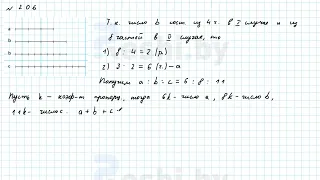 N 206
a
b
c
Т.к. число b сост. из 4 ч. в I случае и из
8 частей в II случае, то
1) 8 : 4 = 2 (р.)
2) 3 · 2 = 6 (ч.) - a
Получим a : b : c = 6 : 8 : 11
Пусть k - коэф-т пропорц., тогда 6k - число a, 8k - число b,
11k - число c. a + b + c